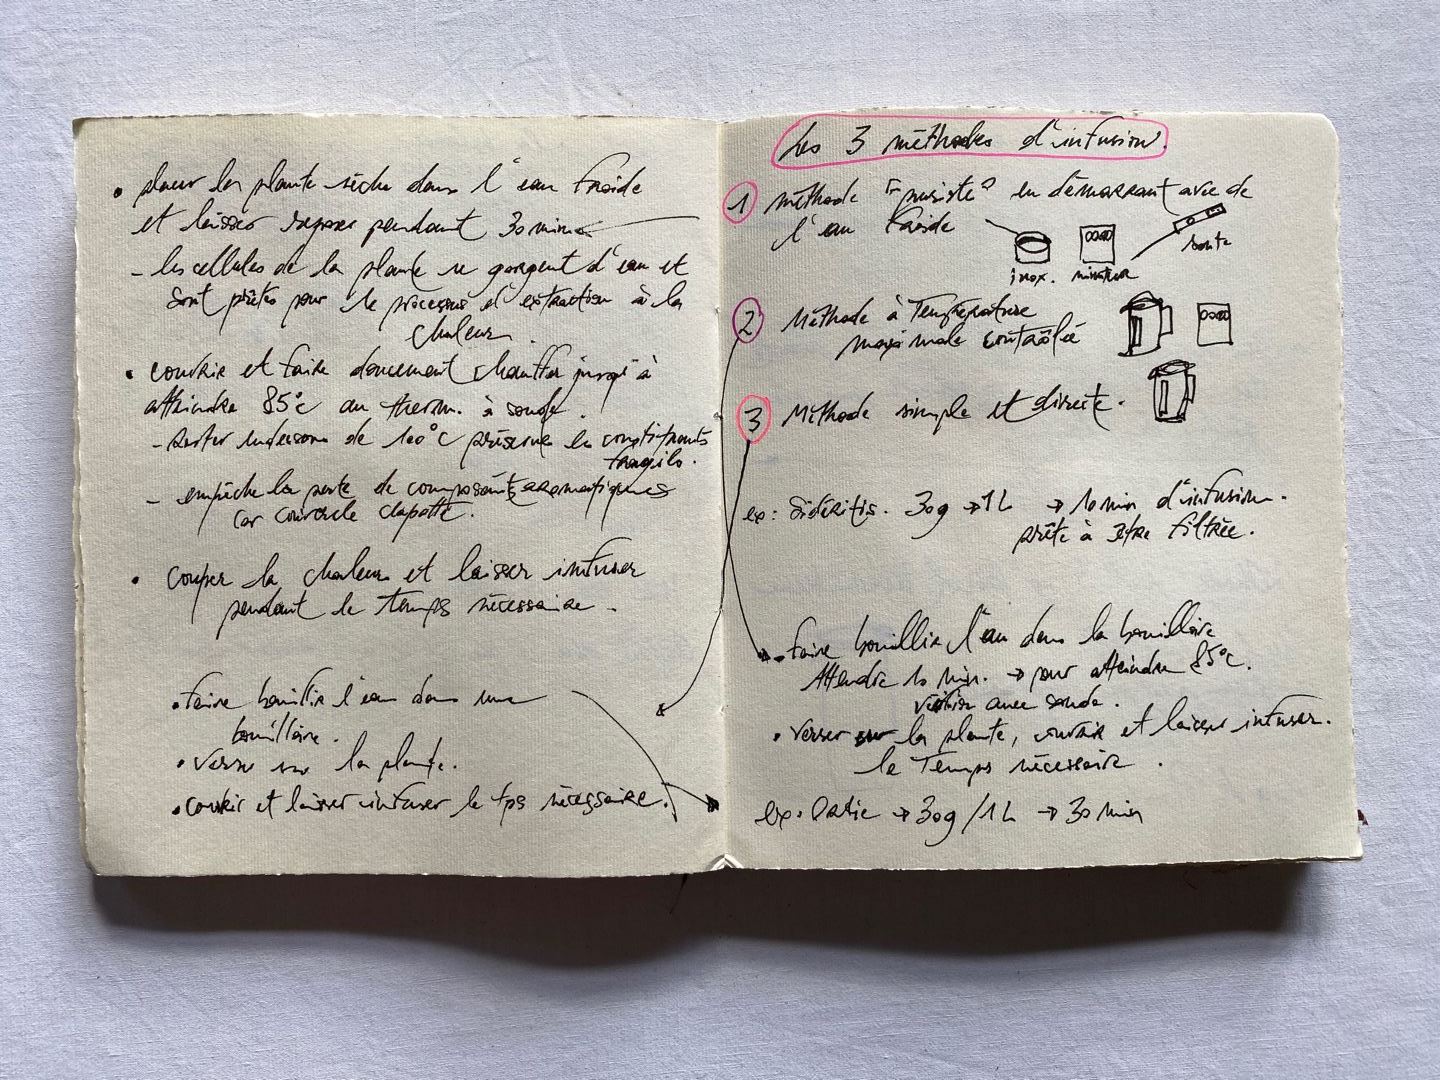 • placer la plante sèche dans l'eau froide
et laisser reposer pendant 30 min
- les cellules de la plante se gorgent d'eau et
sont prêtes pour le processus d'extraction à la
chaleur.
• couvrir et faire doucement chauffer jusqu'à
atteindre 85°C au therm. à sonde.
- rester en dessous de 100°C préserve les constituants
fragiles.
- empêche la perte de composants aromatiques
car couvercle clapotte.
• couper la chaleur et laisser infuser
pendant le temps nécessaire.
• faire bouillir l'eau dans une
bouilloire.
• verser sur la plante.
• couvrir et laisser infuser le tps nécessaire.
Les 3 méthodes d'infusion.
1 méthode "puriste" en démarrant avec de
l'eau froide
inox. minuteur sonde
2 Méthode à Température
maximale contrôlée
3 Méthode simple et directe.
ex: Sidéritis. 30g → 1L → 10 min d'infusion.
prête à être filtrée.
• faire bouillir l'eau dans la bouilloire
Attendre 10 min. → pour atteindre 85°C.
vérifier avec sonde.
• verser sur la plante, couvrir et laisser infuser.
le Temps nécessaire.
ex: Ortie → 30g/1L → 30 min